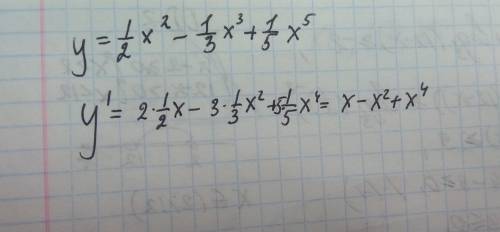 y = 1/2 x² - 1/3 x³ + 1/5 x⁵
y' = 2·1/2 x - 3·1/3 x² + 5·1/5 x⁴ = x - x² + x⁴